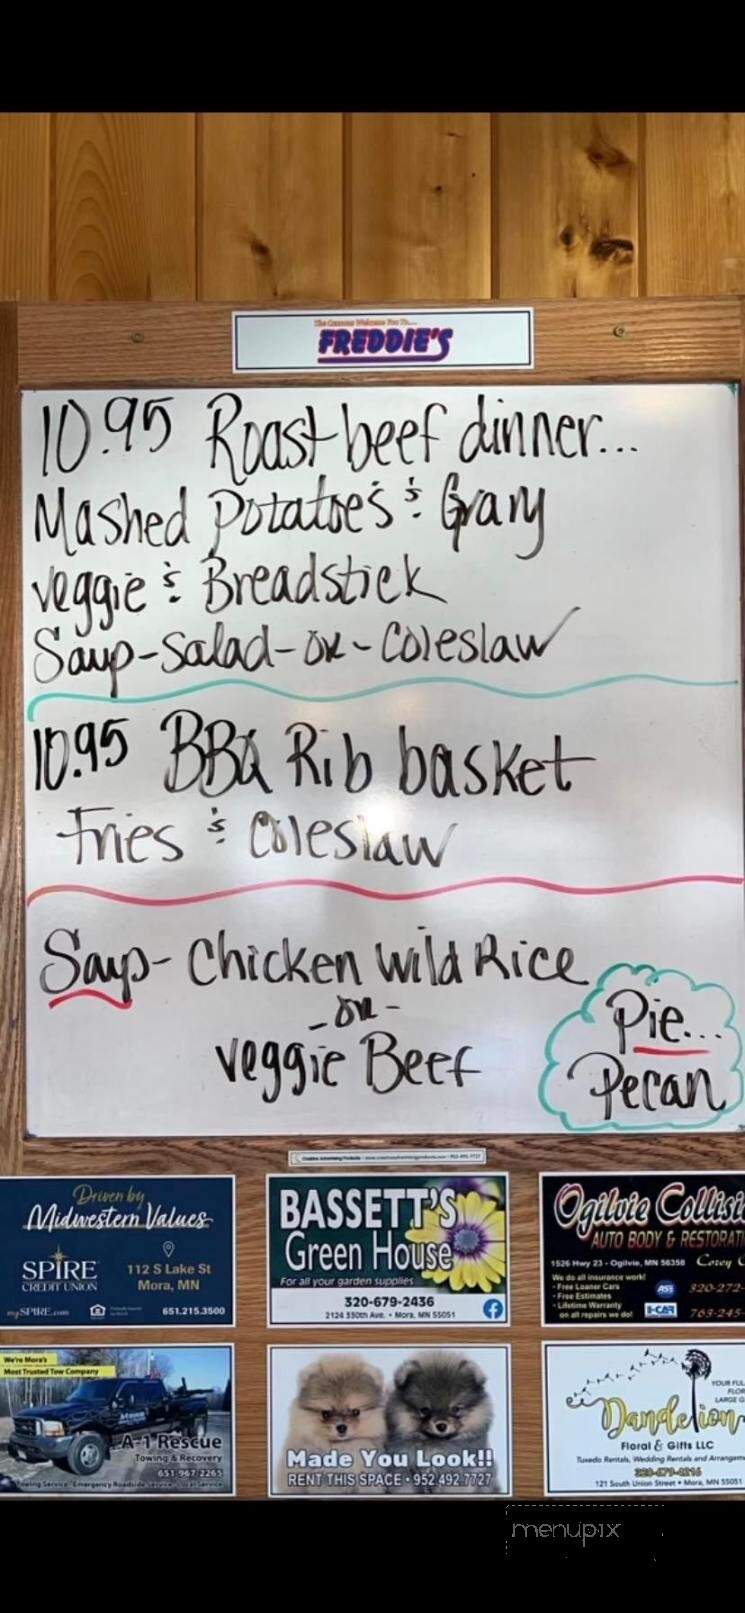 FREDDIE'S
10.95 Roast beef dinner...
Mashed Potatoe's & Gravy
Veggie & Breadstick
Soup-Salad-or-Coleslaw
10.95 BBQ Rib basket
Fries & Coleslaw
Soup- Chicken Wild Rice
-or-
Veggie Beef
Pie...
Pecan
Driven by
Midwestern Values
SPIRE
CREDIT UNION
112 S Lake St
Mora, MN
mySPIRE.com
651.215.3500
BASSETT'S
Green House
For all your garden supplies
320-679-2436
2124 350th Ave. • Mora, MN 55051
Ogilvie Collisi
AUTO BODY & RESTORATI
1526 Hwy 23 - Ogilvie, MN 56358 Corey
We do all insurance work!
- Free Loaner Cars
- Free Estimates
- Lifetime Warranty
on all repairs we do!
ASE
I-CAR
320-272-
763-245-
We're Mora's
Most Trusted Tow Company
A-1 Rescue
Towing & Recovery
651-967-2265
Towing Service • Emergency Roadside Service •
Made You Look!!
RENT THIS SPACE • 952.492.7727
YOUR FUL
FLOR
LARGE G
Dandelion
Floral & Gifts LLC
Tuxedo Rentals, Wedding Rentals and Arrangem
121 South Union Street • Mora, MN 55051
menupix